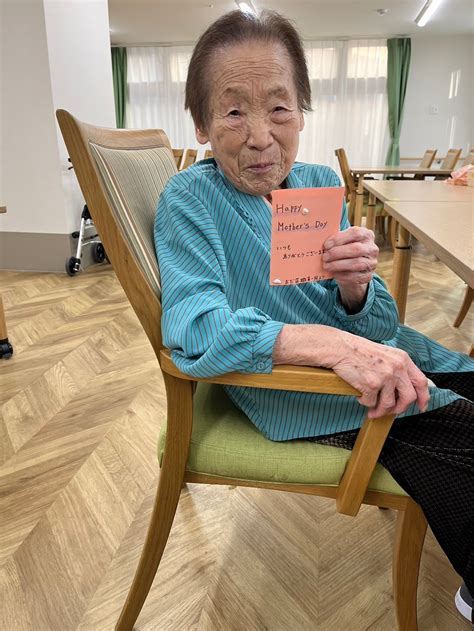 Happy
Mother's Day
いつも
ありがとうございます